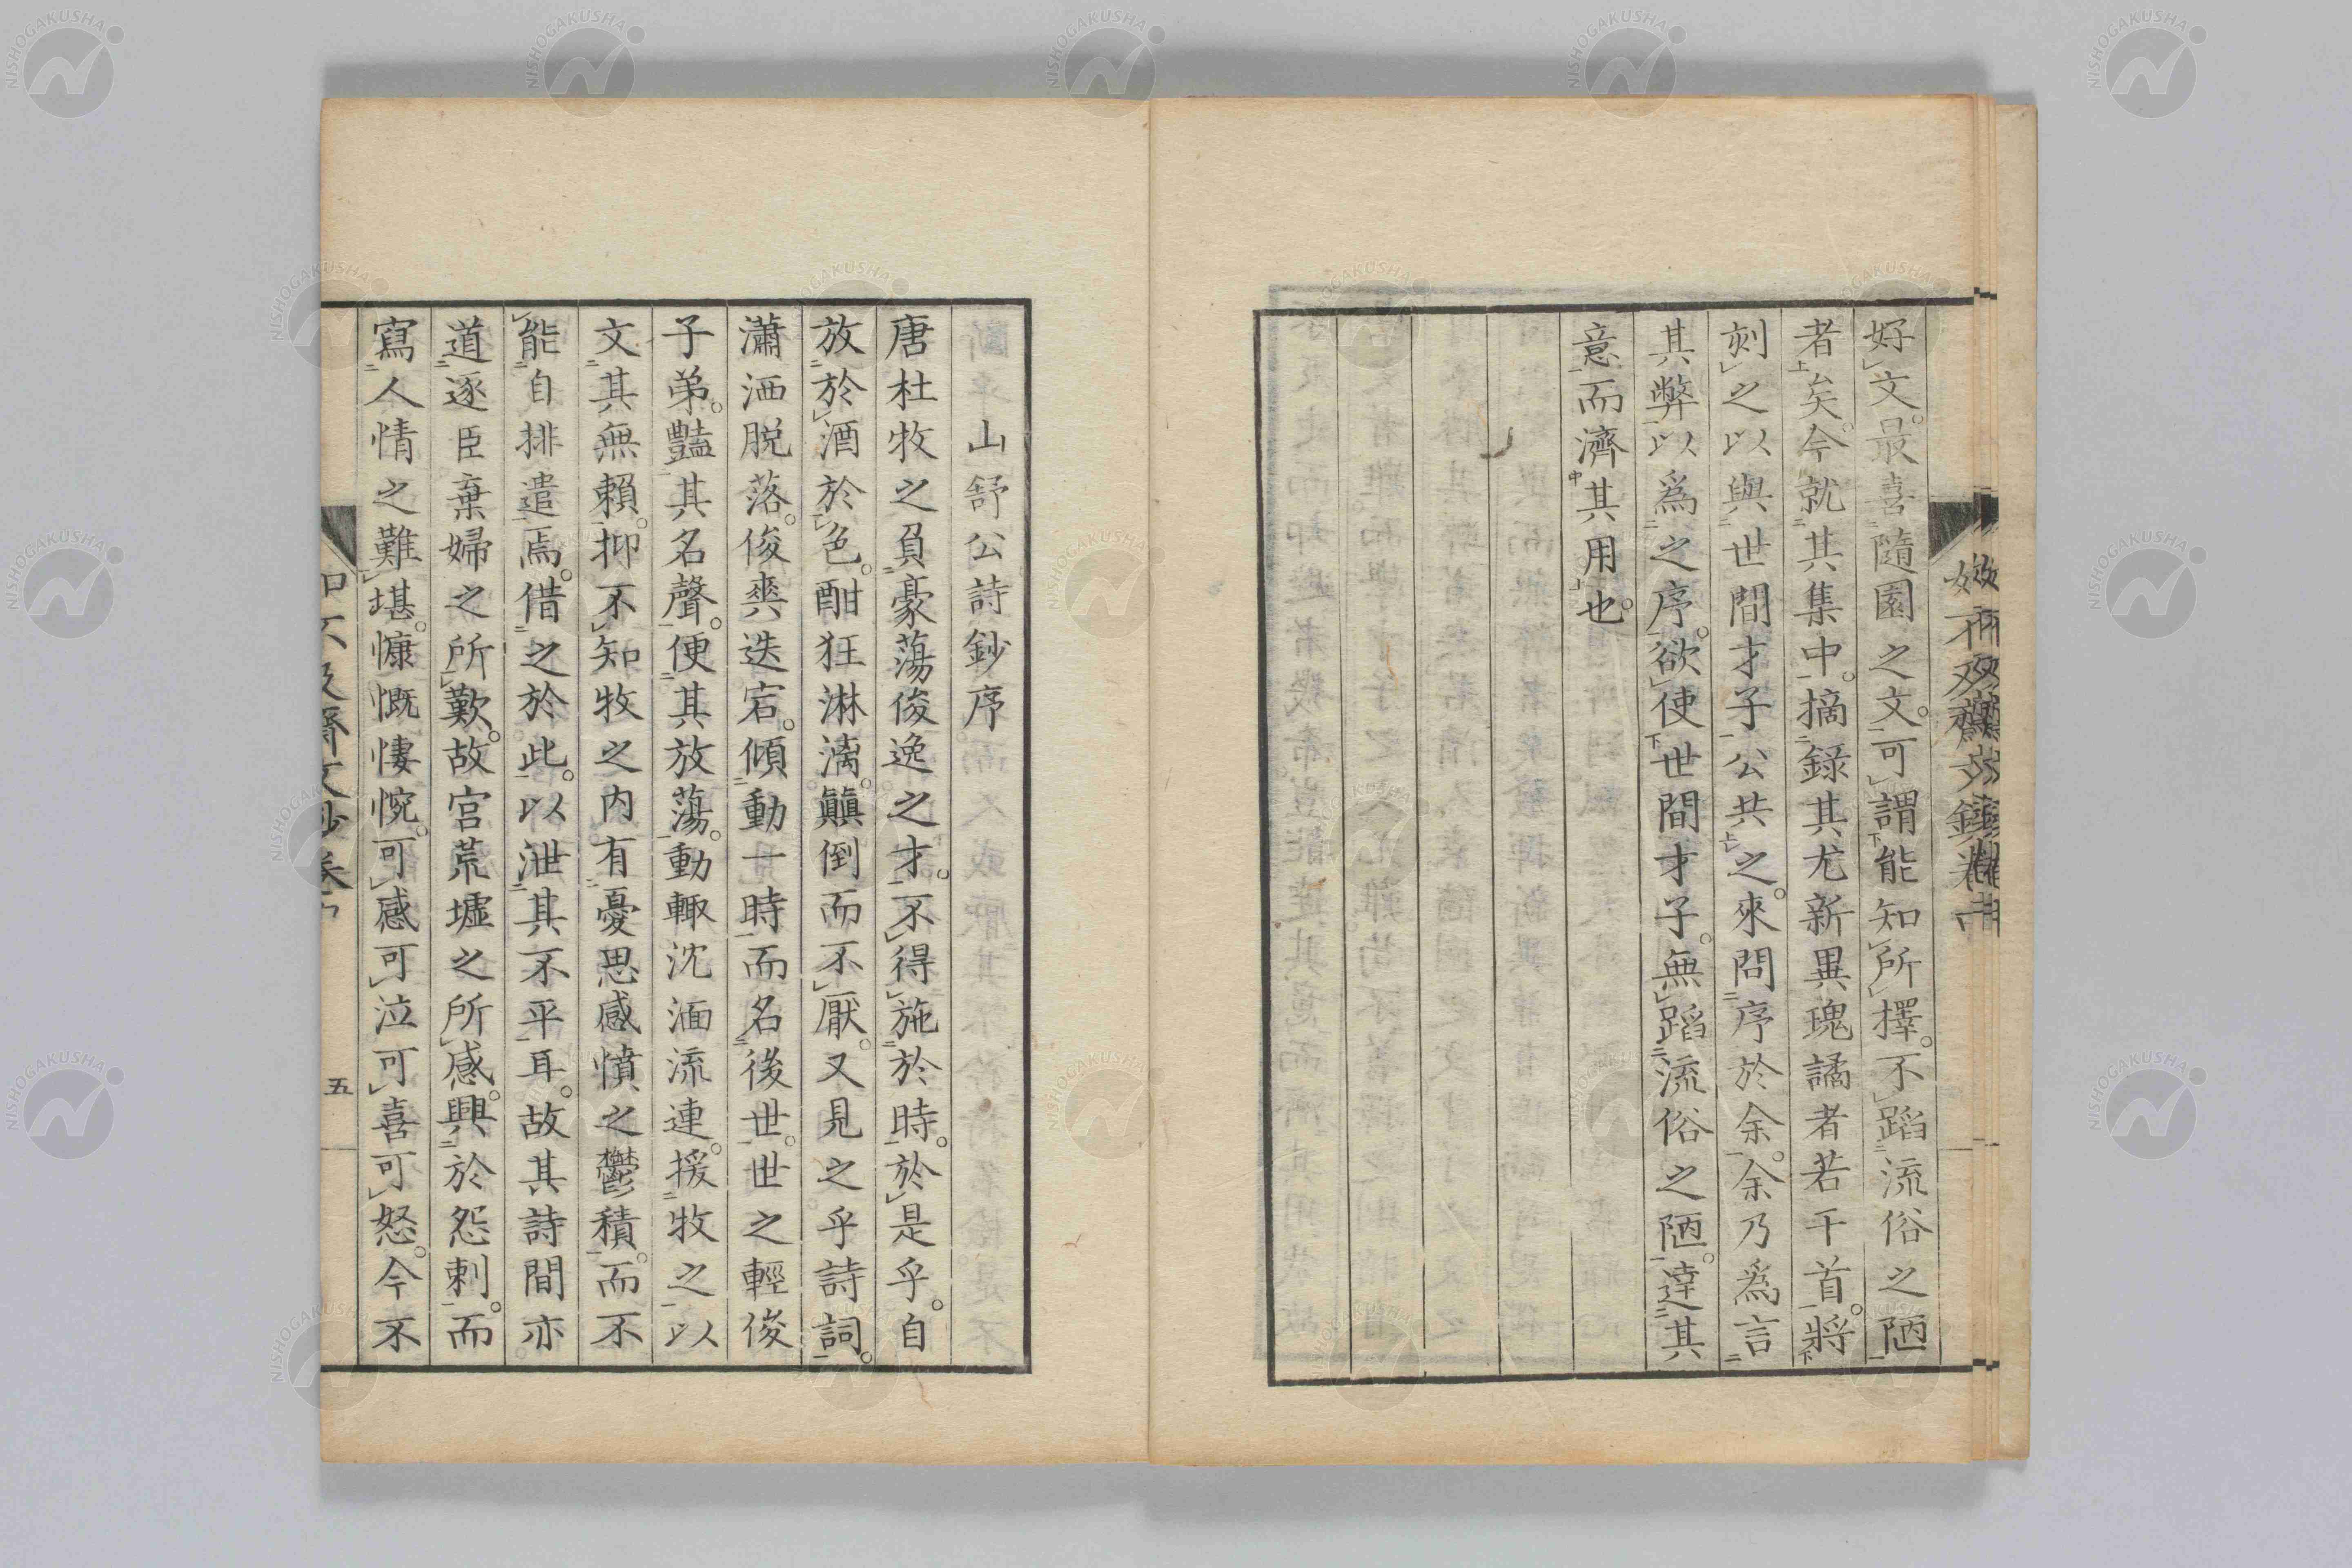 好文。最喜隨園之文。可謂能知所擇。不蹈流俗之陋
者矣。今就其集中。摘録其尤新異瑰譎者若干首。將
刻之以與世間才子公共之。來問序於余。余乃爲言
其弊以爲之序。欲使世間才子。無蹈流俗之陋。達其
意而濟其用也。
山舒公詩鈔序
唐杜牧之負豪蕩俊逸之才。不得施於時。於是乎。自
放於酒於色。酣狂淋漓。顚倒而不厭。又見之乎詩詞。
瀟洒脱落。俊爽迭宕。傾動一時而名後世。世之輕俊
子弟。豔其名聲。便其放蕩。動輙沈湎流連。援牧之以
文其無賴。抑不知牧之内有憂思感憤之鬱積。而不
能自排遣焉。借之於此。以泄其不平耳。故其詩間亦
道逐臣棄婦之所歎。故宮荒墟之所感。興於怨刺。而
寫人情之難堪。慷慨悽惋。可感可泣可喜可怒。今不
五